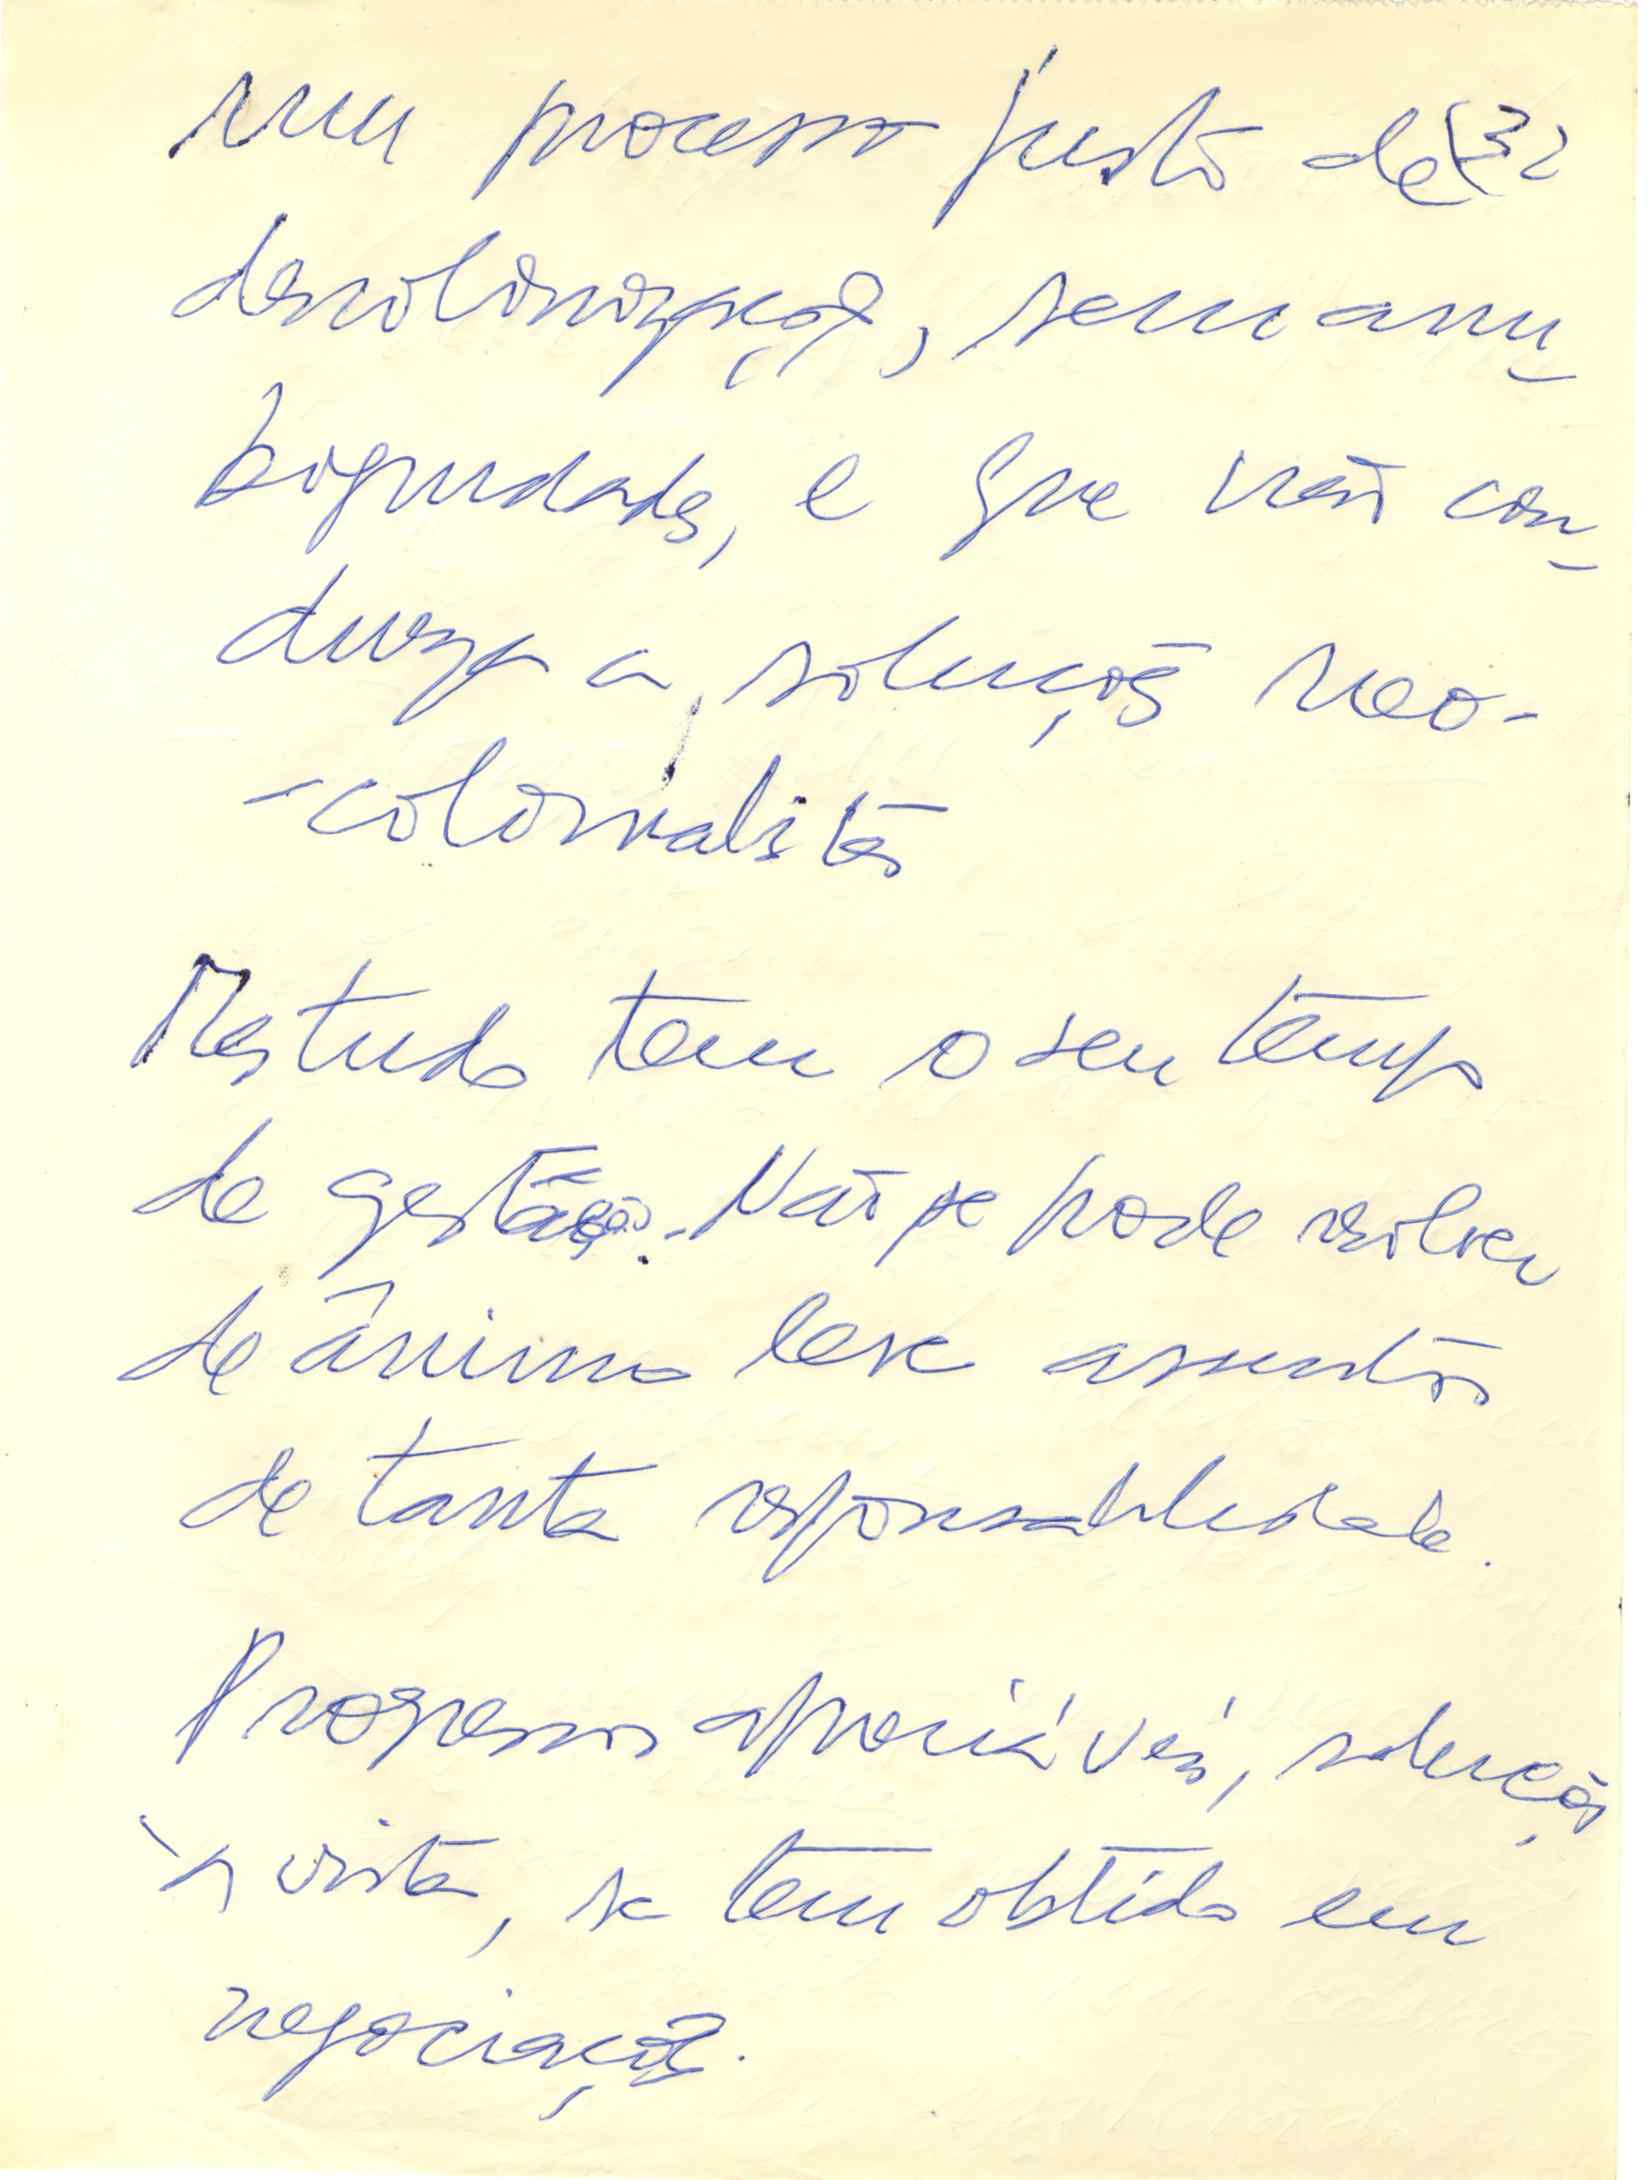 num processo justo de (32
descolonização, sem am-
biguidades, e que não con-
duza a soluções neo-
-colonialistas
Mas tudo tem o seu tempo
de gestação. Não se pode resolver
de ânimo leve assuntos
de tanta responsabilidade.
Progressos apreciáveis, soluções
à vista, se tem obtido em
negociações.